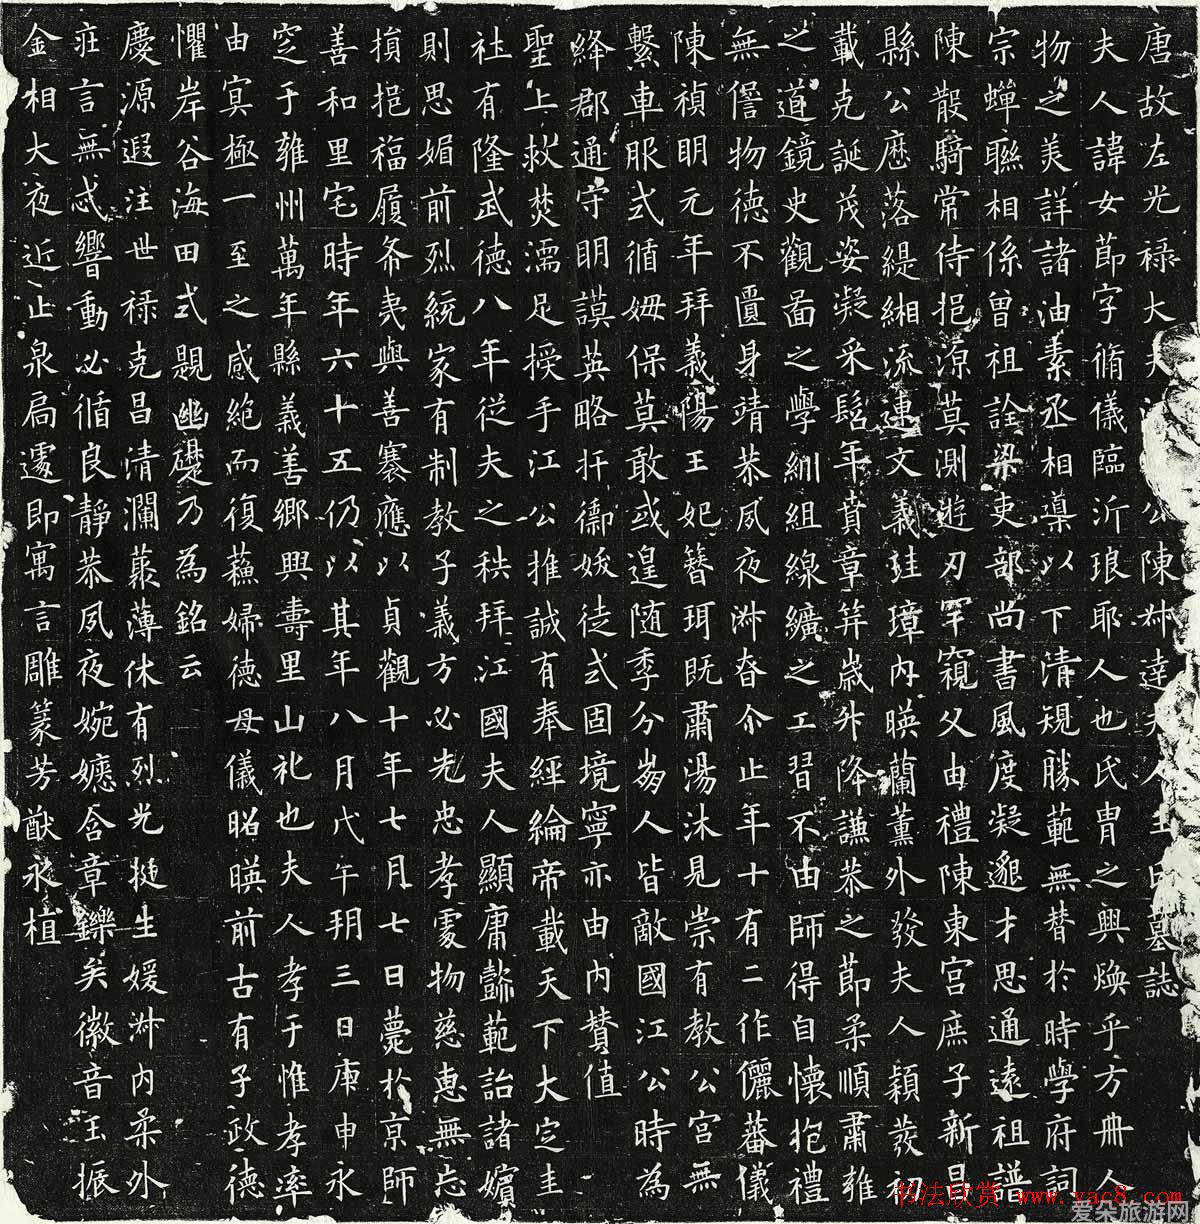 唐故左光禄大夫江公陳叔達夫人王氏墓誌
夫人諱女莭字脩儀臨沂琅耶人也氏冑之興煥乎方冊人
物之美詳諸油素丞相導以下清規勝範無替於時學府詞
宗蟬聯相係曾祖詮梁吏部尚書風度凝邈才思通遠祖譜
陳散騎常侍挹源莫測遊刃罕窺父由禮陳東宫庶子新昌
縣公歷落緹緗流連文義珪璋内暎蘭薰外發夫人穎發初
載克誕茂姿凝采髫年賁章笄歲外降謙恭之莭柔順肅雍
之道鏡史觀啚之學絍組線纊之工習不由師得自懷抱禮
無僭物德不匱身靖恭夙夜淋昚介止年十有二作儷蕃儀
陳禎明元年拜義陽王妃簪珥既肅湯沐見崇有教公宫無
繫車服式循姆保莫敢或遑隨季分崩人皆敵國江公時為
絳郡通守明謨英略扞禦媛徒式固境寧亦由内賛值
聖上救焚濡足授手江公推誠有奉經綸帝載天下大定圭
社有隆武德八年従夫之秩拜江國夫人顯庸懿範詒諸嬪
則思媚前烈統家有制教子義方必先忠孝䖏物慈惠無忘
損挹福履㡀夷與善褰應以貞觀十年七月七日薨於京師
善和里宅時年六十五仍以其年八月戊午朔三日庚申永
窆于雍州萬年縣義善鄉興壽里山礼也夫人孝于惟孝率
由寞極一至之感絶而復蘓婦德母儀昭暎前古有子政德
懼岸谷海田式題幽礎乃為銘云
慶源遐注世禄克昌清瀾叢薄休有烈光挺生媛淋内柔外
莊言無忒響動必循良靜恭夙夜婉嬺含章鑠矣徽音玉振
金相大夜近止泉扃遽即寓言雕篆芳猷永植
书法欣赏 www.yac8.com
爱朵旅游网